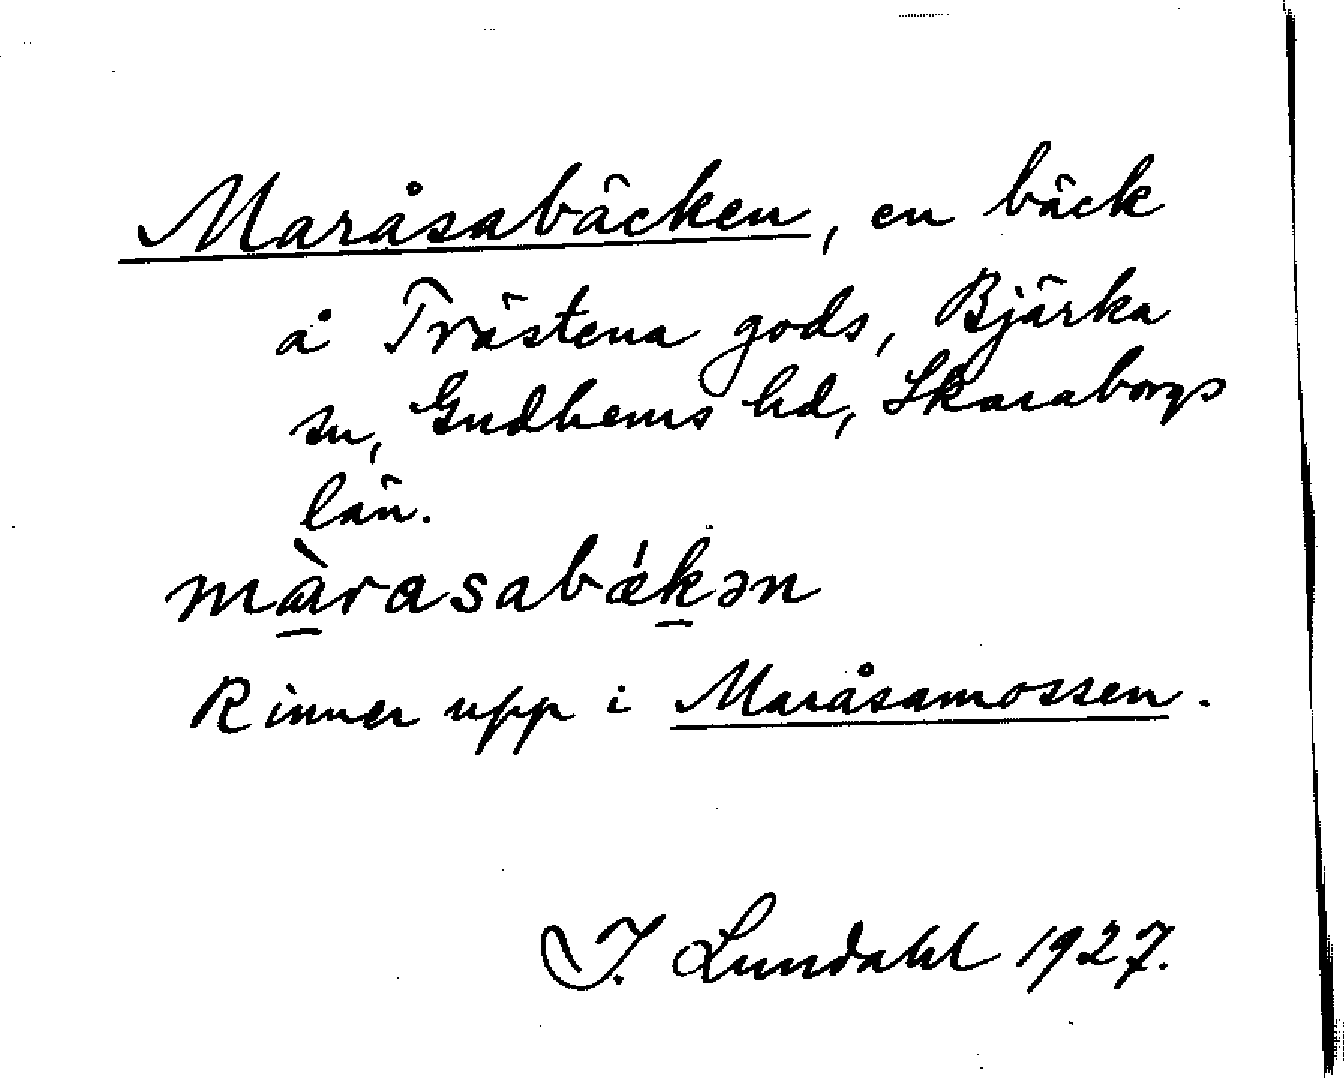 Maråsabäcken, en bäck
å Trästena gods, Bjärka
sn, Gudhems hd, Skaraborgs
län.
màrasabǽkən
Rinner upp i Maråsamossen.
I. Lundahl 1927.